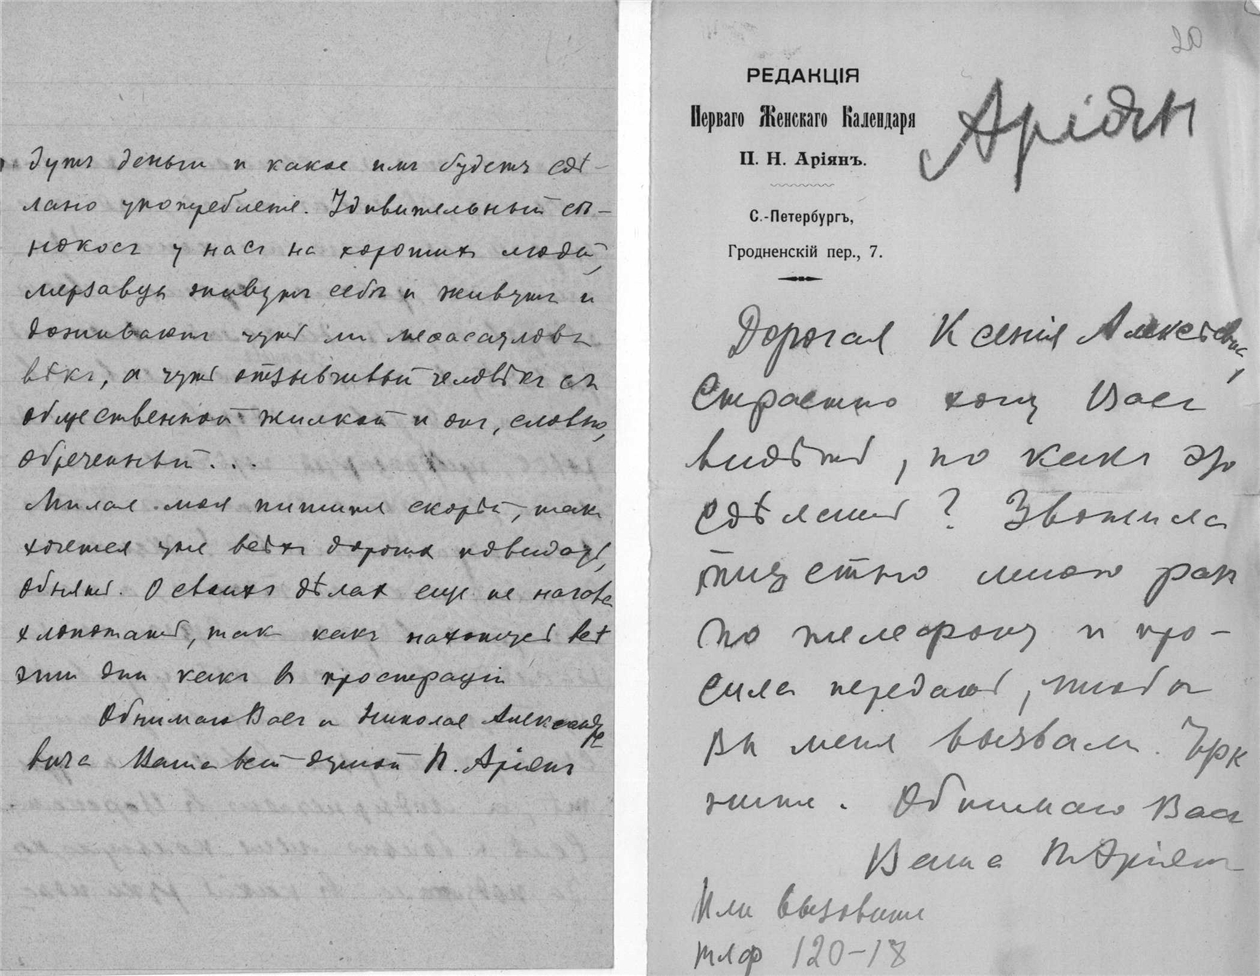 дутъ деньги и какое имъ будетъ сдѣ-
лано употребленіе. Удивительный сѣ-
нокосъ у насъ на хорошихъ людей,
мерзавцы живутъ себѣ и живутъ и
доживаютъ чуть ли не
вѣкъ, а чуть отзывчивый человѣкъ съ
общественной жилкой и онъ, словно,
обреченный...
Милая моя пишите скорѣй, такъ
хочется уже
обнять. О своихъ дѣлахъ еще не
хлопотать, такъ какъ нахожусь всѣ
эти дни какъ въ прострацiи
Обнимаю Васъ и Николая Александро
вича Ваша всей душой П. Аріянъ
20
РЕДАКЦІЯ
Перваго Женскаго Календаря
П. Н. Аріянъ.
С.-Петербургъ,
Гродненскій пер., 7.
Аріян
Дорогая Ксенія Алексѣевна,
Страстно хочу Васъ
видѣть, но какъ это
сдѣлать? Звонила
много разъ
по телефону и про-
сила передать, чтобы
Вы меня вызвали. Черк
ните. Обнимаю Васъ
Ваша П Аріянъ
Или вызовите
тлф 120-18